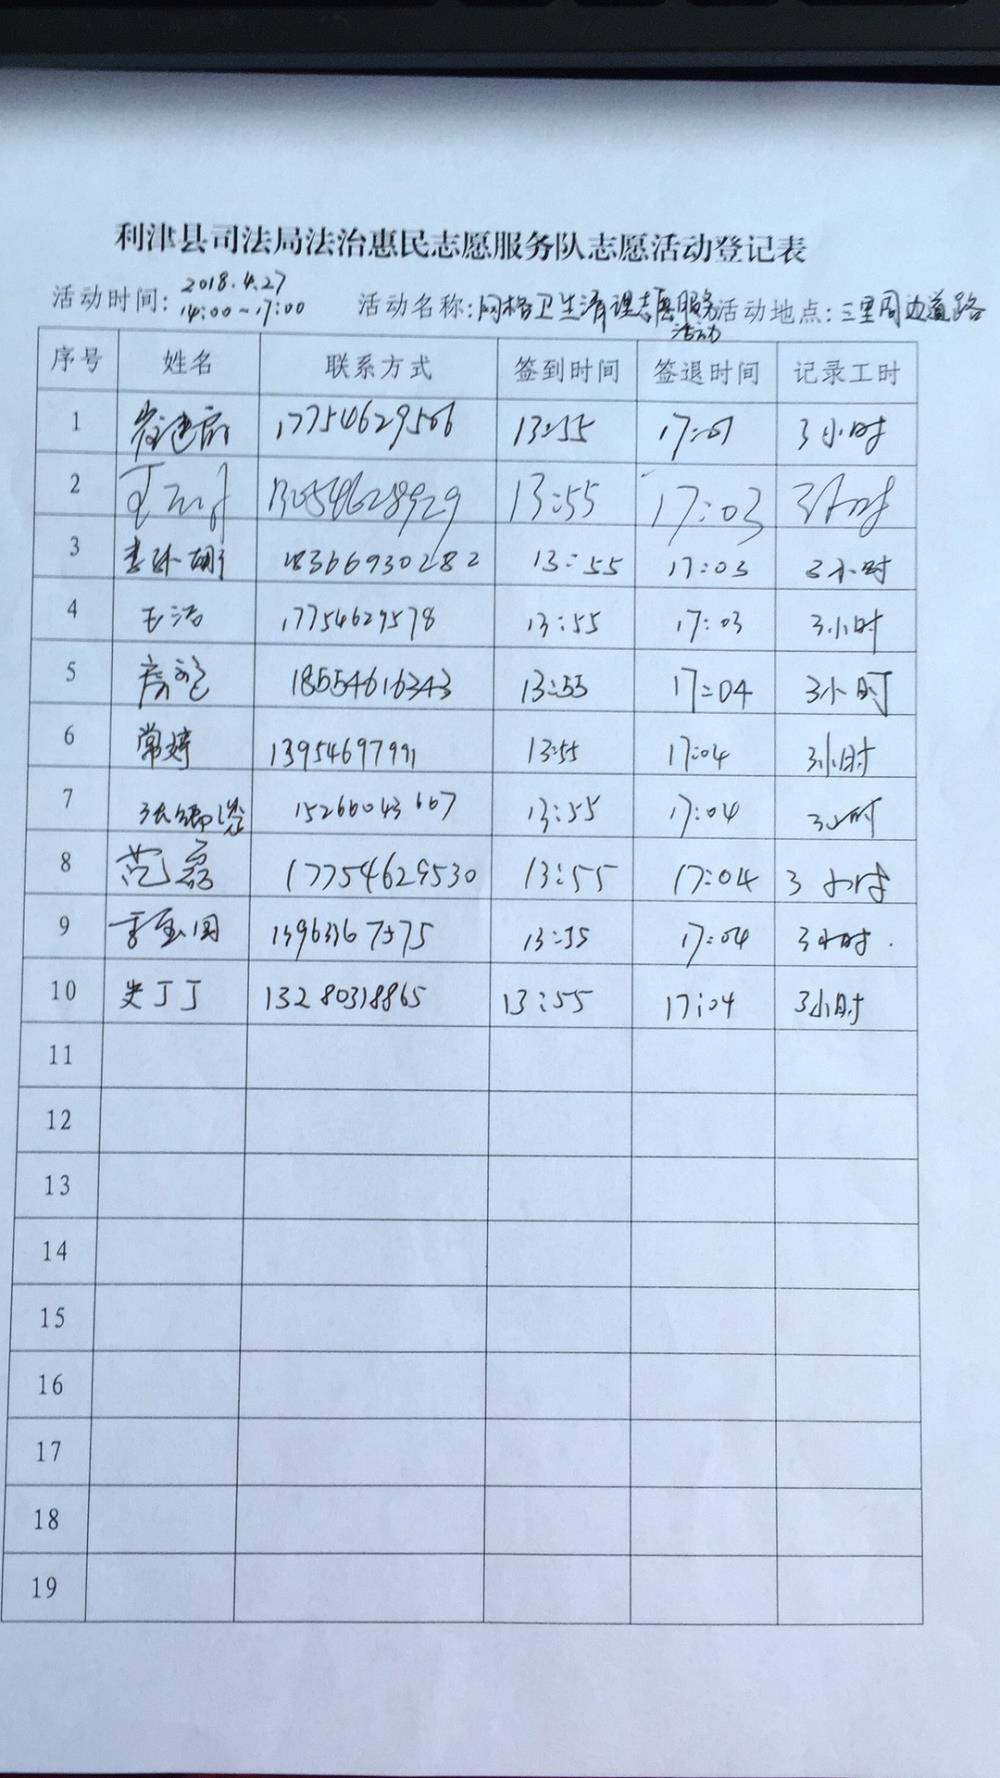 利津县司法局法治惠民志愿服务队志愿活动登记表
活动时间: 2018.4.27 14:00~17:00 活动名称: 网格卫生清理志愿服务活动 活动地点: 三里周边道路
序号 姓名 联系方式 签到时间 签退时间 记录工时
1 17754629506 13:55 17:01 3小时
2 13054628929 13:55 17:03 3小时
3 18366930282 13:55 17:03 3小时
4 王洁 17754629578 13:55 17:03 3小时
5 18554616343 13:55 17:04 3小时
6 常婷 13954697991 13:55 17:04 3小时
7 15266043667 13:55 17:04 3小时
8 范磊 17754629530 13:55 17:04 3小时
9 李玉国 13963367575 13:55 17:04 3小时.
10 史丁丁 13280318865 13:55 17:04 3小时
11
12
13
14
15
16
17
18
19